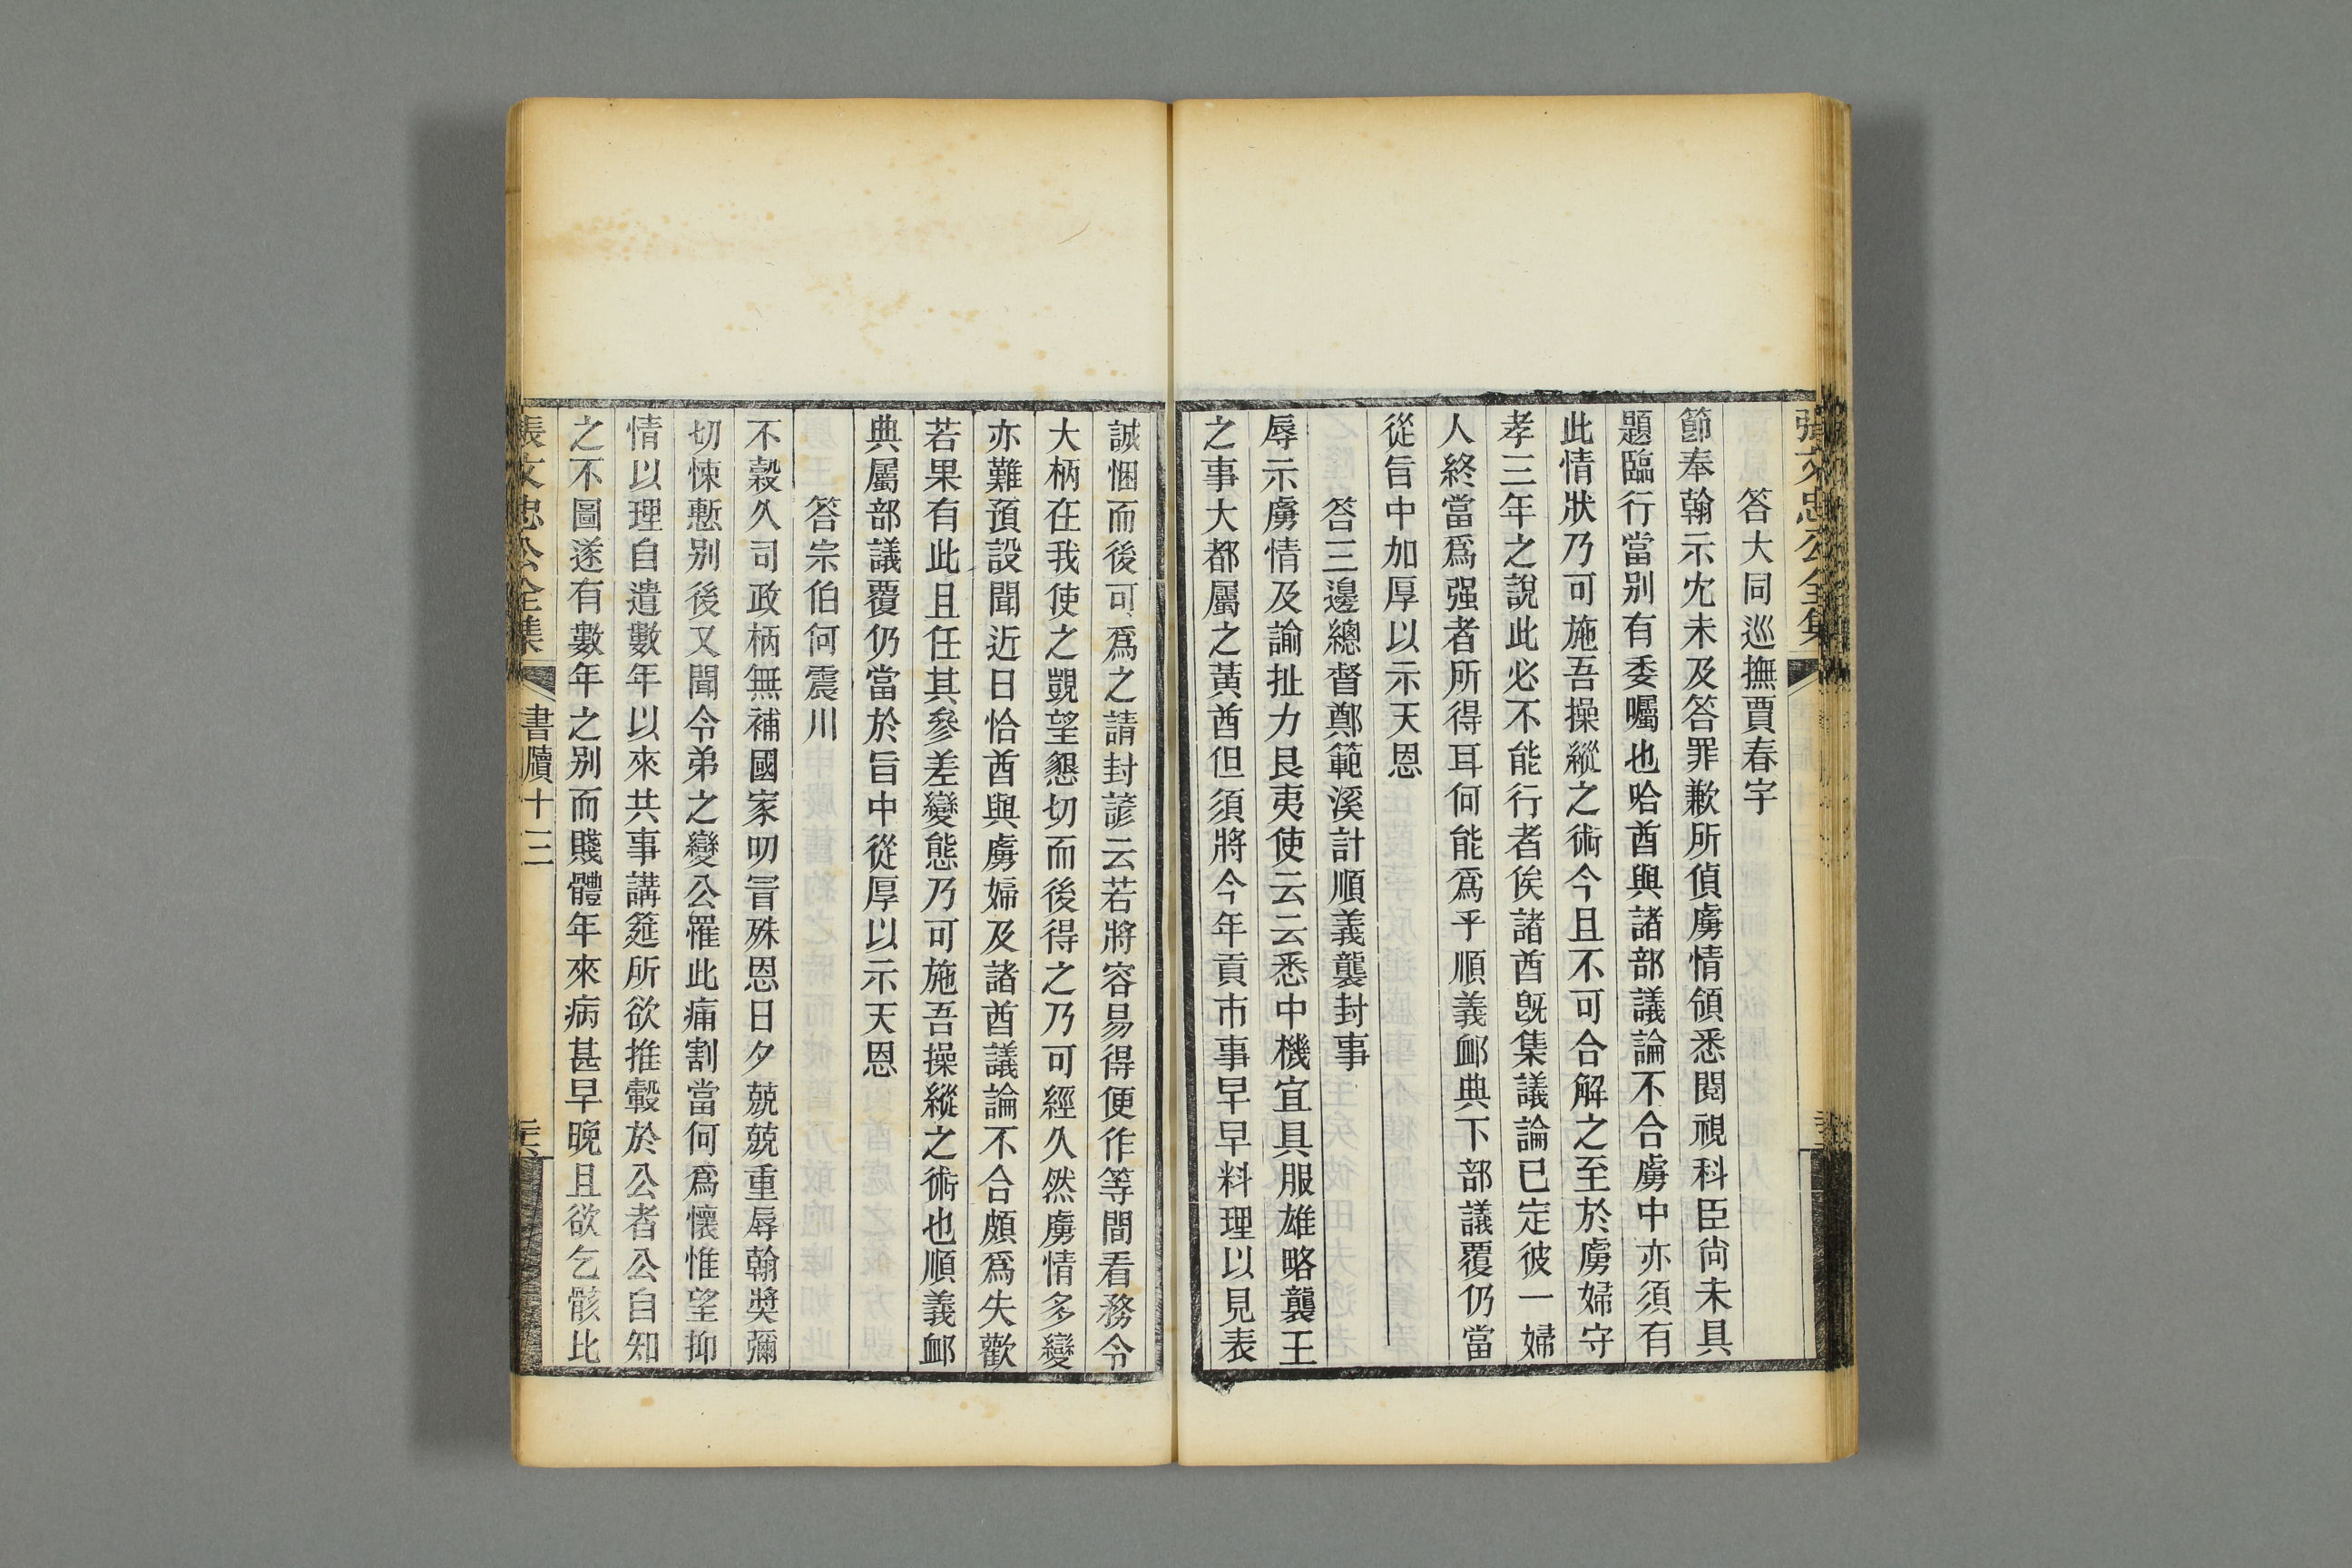 張文忠公全集
答大同巡撫賈春宇
節奉翰示冗未及答罪歉所偵虜情領悉閱視科臣尙未具
題臨行當別有委囑也哈酋與諸部議論不合虜中亦須有
此情狀乃可施吾操縱之術今且不可合解之至於虜婦守
孝三年之說此必不能行者俟諸酋旣集議論已定彼一婦
人終當爲强者所得耳何能爲乎順義卹典下部議覆仍當
從旨中加厚以示天恩
答三邊總督鄭範溪計順義襲封事
辱示虜情及諭扯力艮夷使云云悉中機宜具服雄略襲王
之事大都屬之黃酋但須將今年貢市事早早料理以見表
誠悃而後可爲之請封諺云若將容易得便作等間看務令
大柄在我使之覬望懇切而後得之乃可經久然虜情多變
亦難預設聞近日恰酋與虜婦及諸酋議論不合頗爲失歡
若果有此且任其參差變態乃可施吾操縱之術也順義卹
典屬部議覆仍當於旨中從厚以示天恩
答宗伯何震川
不穀久司政柄無補國家叨冐殊恩日夕兢兢重辱翰獎彌
切悚慙別後又聞令弟之變公罹此痛割當何爲懷惟望抑
情以理自遣數年以來共事講筵所欲推轂於公者公自知
之不圖遂有數年之別而賤體年來病甚早晚且欲乞骸比
張文忠公全集 書牘十三